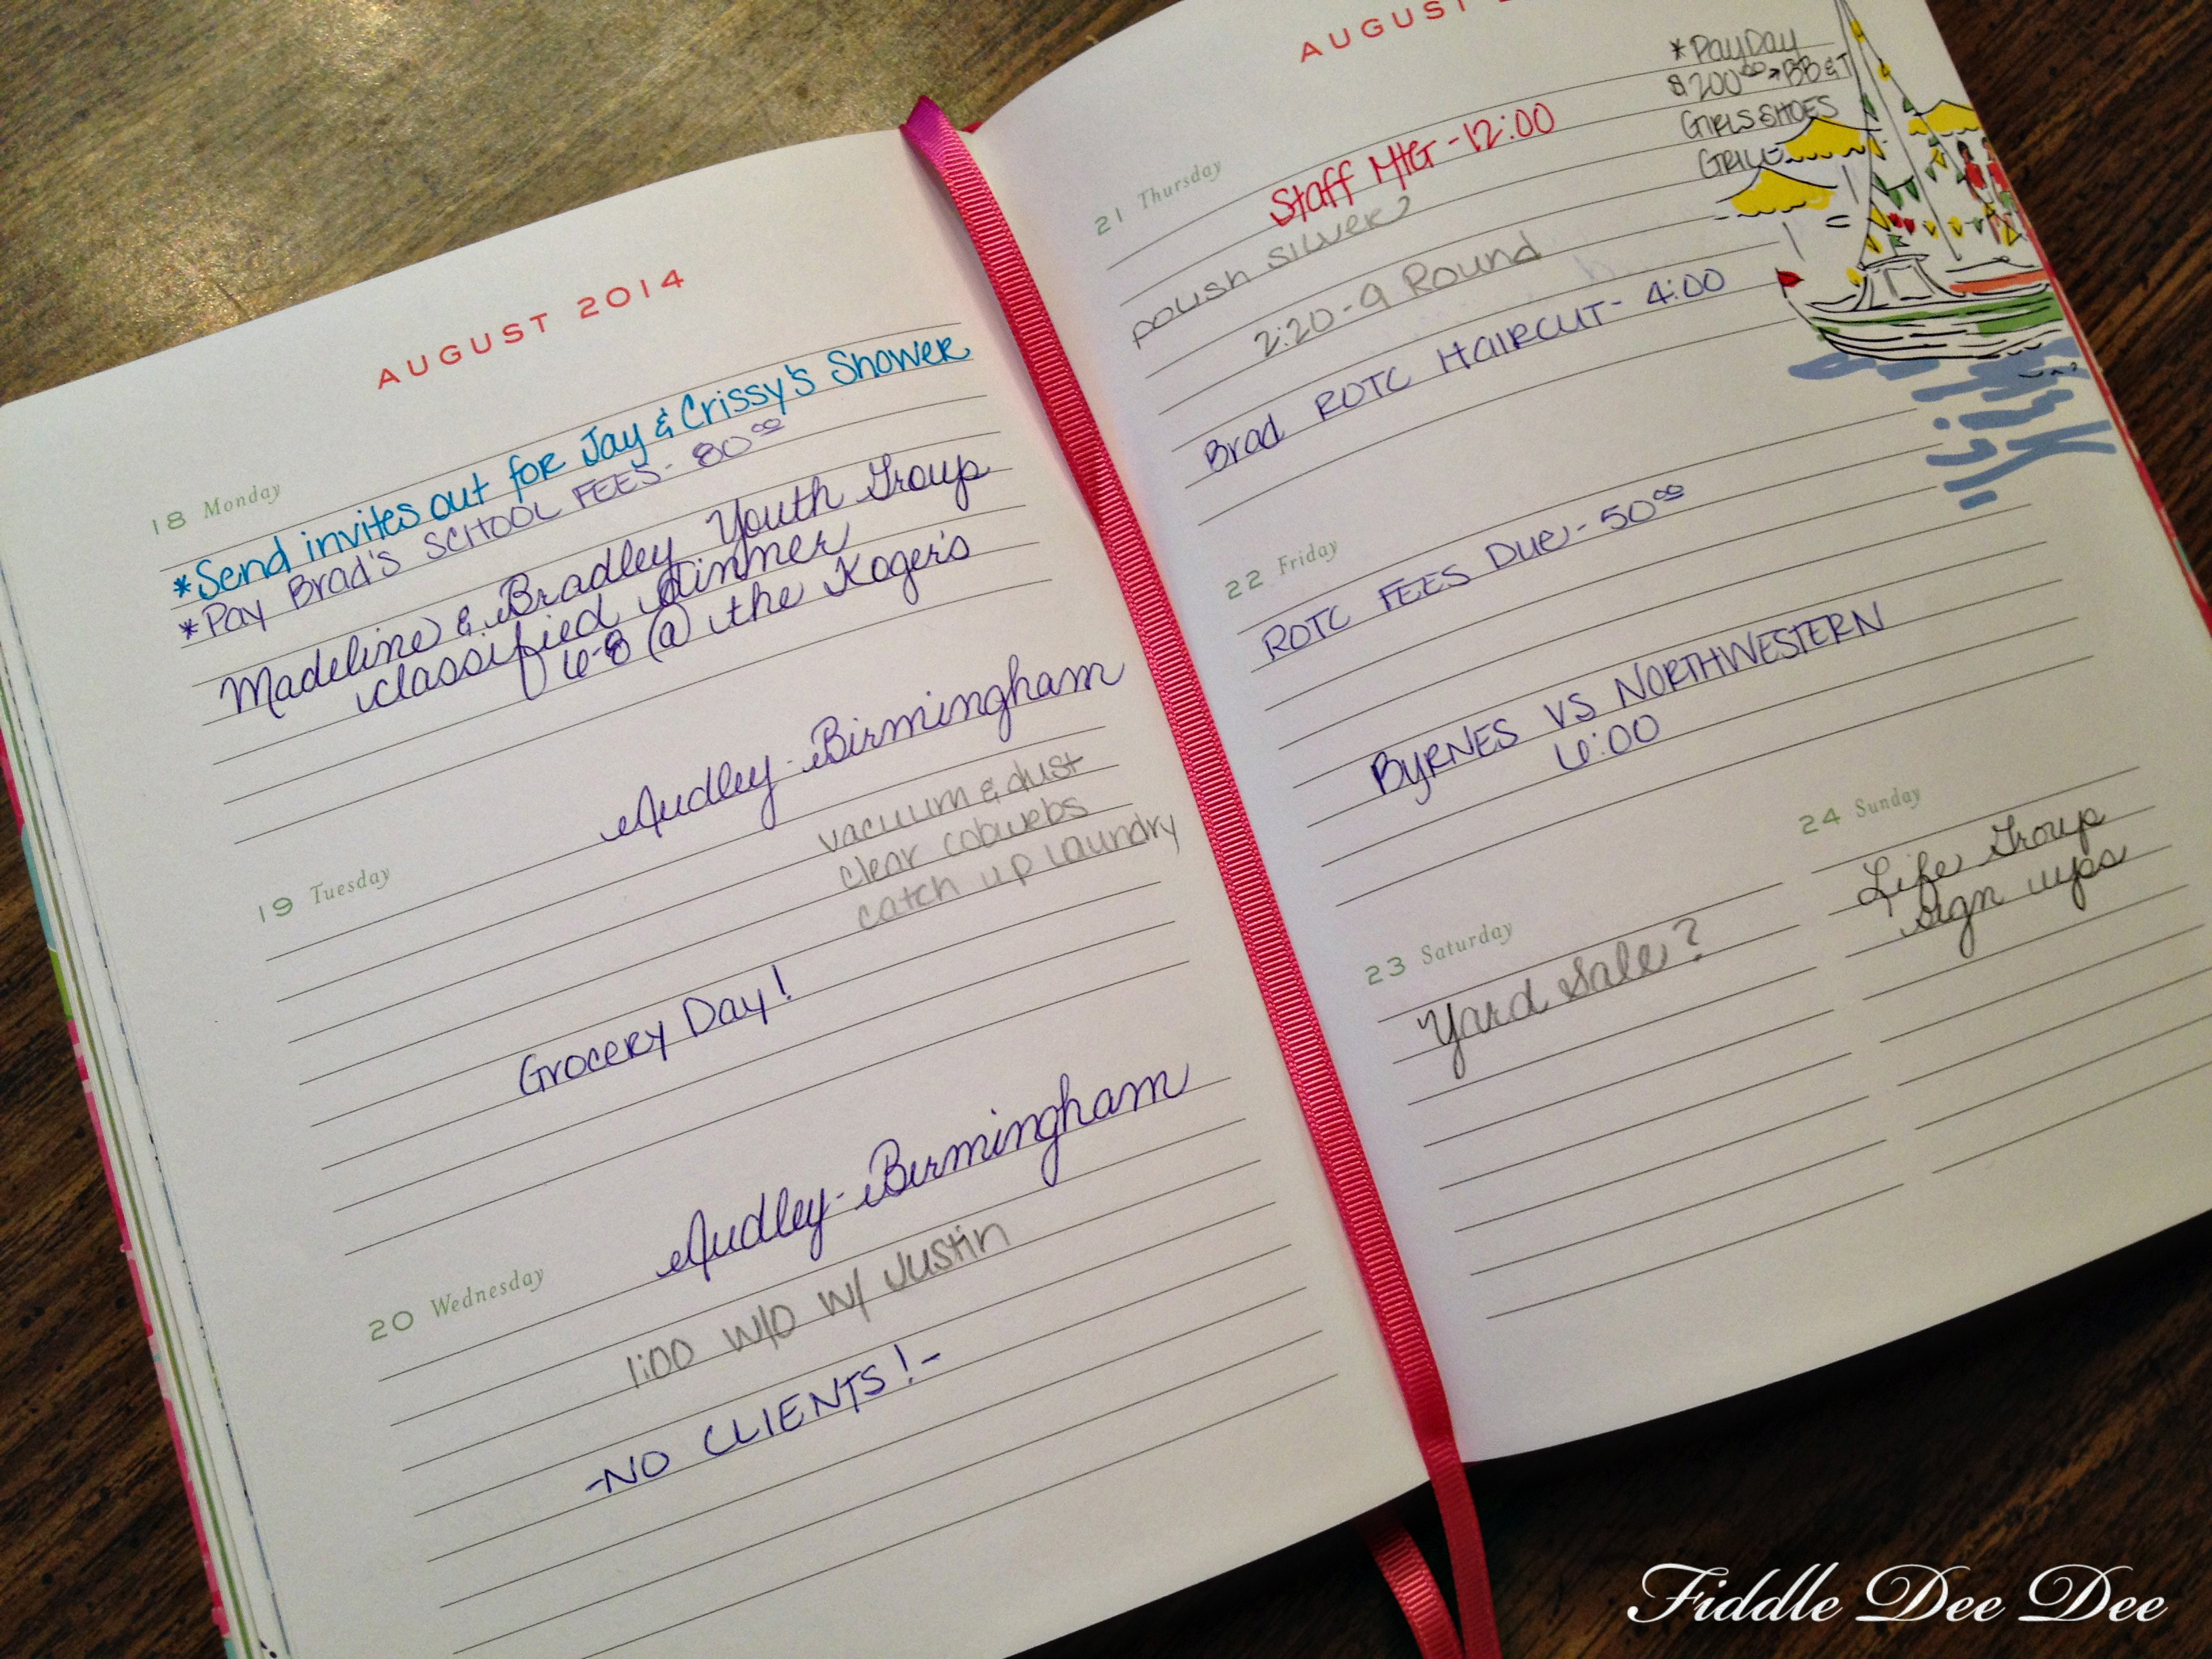 AUGUST 2014
18 Monday
*Send invites out for Jay & Crissy's Shower
*Pay Brad's SCHOOL FEES- 80⁰⁰
Madeline & Bradley Youth Group
classified dinner
6-8 @ the Koger's
Audley-Birmingham
19 Tuesday
vacuum & dust
clear cobwebs
catch up laundry
Grocery Day!
Audley-Birmingham
20 Wednesday
1:00 w/o w/ Justin
-NO CLIENTS!-
AUGUST
*PayDay
$200⁰⁰→BB&T
GIRLS SHOES
GRILL
21 Thursday
Staff MtG-12:00
polish silver
2:20-9 Round
Brad ROTC HAIRCUT- 4:00
22 Friday
ROTC FEES DUE-50⁰⁰
BYRNES VS NORTHWESTERN
6:00
23 Saturday
Yard Sale?
24 Sunday
Life Group
sign ups
Fiddle Dee Dee